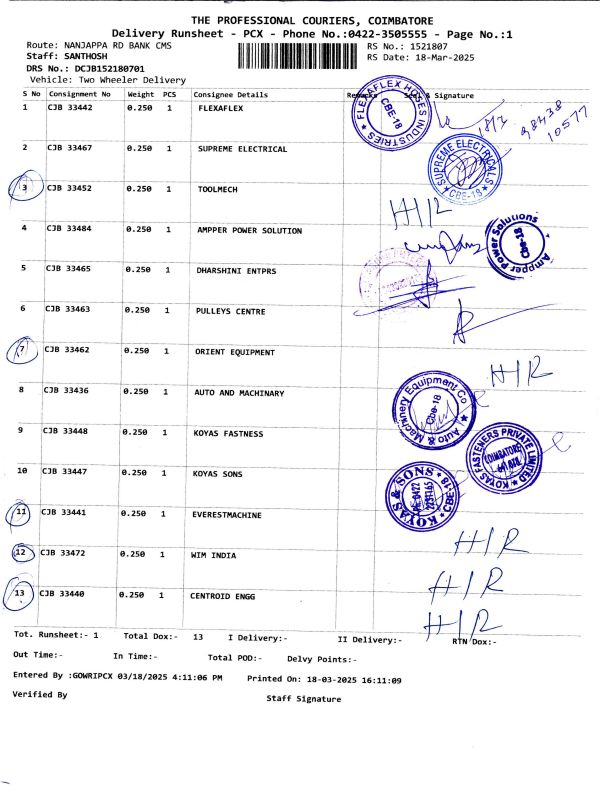 THE PROFESSIONAL COURIERS, COIMBATORE
Delivery Runsheet - PCX - Phone No.:0422-3505555 - Page No.:1
Route: NANJAPPA RD BANK CMS RS No.: 1521807
Staff: SANTHOSH RS Date: 18-Mar-2025
DRS No.: DCJB152180701
Vehicle: Two Wheeler Delivery
S No Consignment No Weight PCS Consignee Details Remarks Seal & Signature
1 CJB 33442 0.250 1 FLEXAFLEX FLEXAFLEX HOSES INDUSTRIES CBE-18 18/3 98438 10577
2 CJB 33467 0.250 1 SUPREME ELECTRICAL SUPREME ELECTRICALS CBE-18
3 CJB 33452 0.250 1 TOOLMECH H/R
4 CJB 33484 0.250 1 AMPPER POWER SOLUTION Ampper Power Solutions Cbe-18
5 CJB 33465 0.250 1 DHARSHINI ENTPRS
6 CJB 33463 0.250 1 PULLEYS CENTRE
7 CJB 33462 0.250 1 ORIENT EQUIPMENT H/R
8 CJB 33436 0.250 1 AUTO AND MACHINARY Auto & Machinery Equipment Co Cbe-18
9 CJB 33448 0.250 1 KOYAS FASTNESS KOYAS FASTENERS PRIVATE LIMITED COIMBATORE
10 CJB 33447 0.250 1 KOYAS SONS KOYAS & SONS CBE-18
11 CJB 33441 0.250 1 EVERESTMACHINE H/R
12 CJB 33472 0.250 1 WIM INDIA H/R
13 CJB 33440 0.250 1 CENTROID ENGG H/R
Tot. Runsheet:- 1 Total Dox:- 13 I Delivery:- II Delivery:- RTN Dox:-
Out Time:- In Time:- Total POD:- Delvy Points:-
Entered By :GOWRIPCX 03/18/2025 4:11:06 PM Printed On: 18-03-2025 16:11:09
Verified By Staff Signature